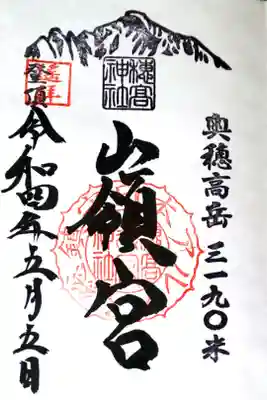 奥穂高岳 三一九〇米
穂高
神社
嶺宮
登頂
令和四年五月五日